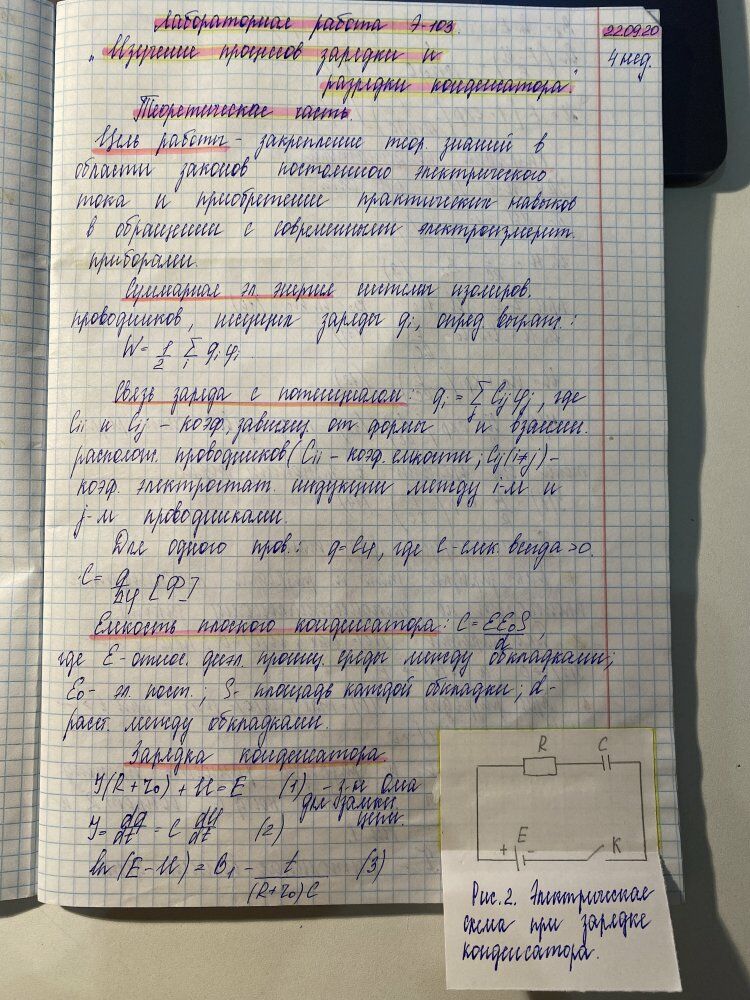 Лабораторная работа Э-103.
22.09.20
"Изучение процесов зарядки и
4 нед.
разрядки конденсатора."
Теоретическая часть.
Цель работы - закрепление теор. знаний в
области законов постоянного электрического
тока и приобретение практических навыков
в обращении с современными электроизмерит.
приборами.
Суммарная эл. энергия системы изолиров.
проводников, несущих заряды qi, опред. выраж.:
W = 1/2 Σi qiφi.
Связь заряда с потенциалом: qi = Σj Cijφj, где
Cii и Cij - коэф., зависящ. от формы и взаимн.
располож. проводников (Cii - коэф. емкости; Cij (i≠j) -
коэф. электростат. индукции между i-м и
j-м проводниками.
Для одного пров.: q=Cφ, где C - емк. всегда >0.
C = q/Δφ [Ф]
Емкость плоского конденсатора: C = EE₀S/d,
где E - относ. диэл. прониц. среды между обкладками;
E₀ - эл. пост.; S - площадь каждой обкладки; d -
расст. между обкладками.
Зарядка конденсатора
I(R+r₀) + U = E (1) - з-н Ома
для замкн.
цепи.
I = dq/dt = C dU/dt (2)
ln(E-U) = B₁ - t/(R+r₀)C (3)
R C
+ E - K
Рис. 2. Электрическая
схема при зарядке
конденсатора.